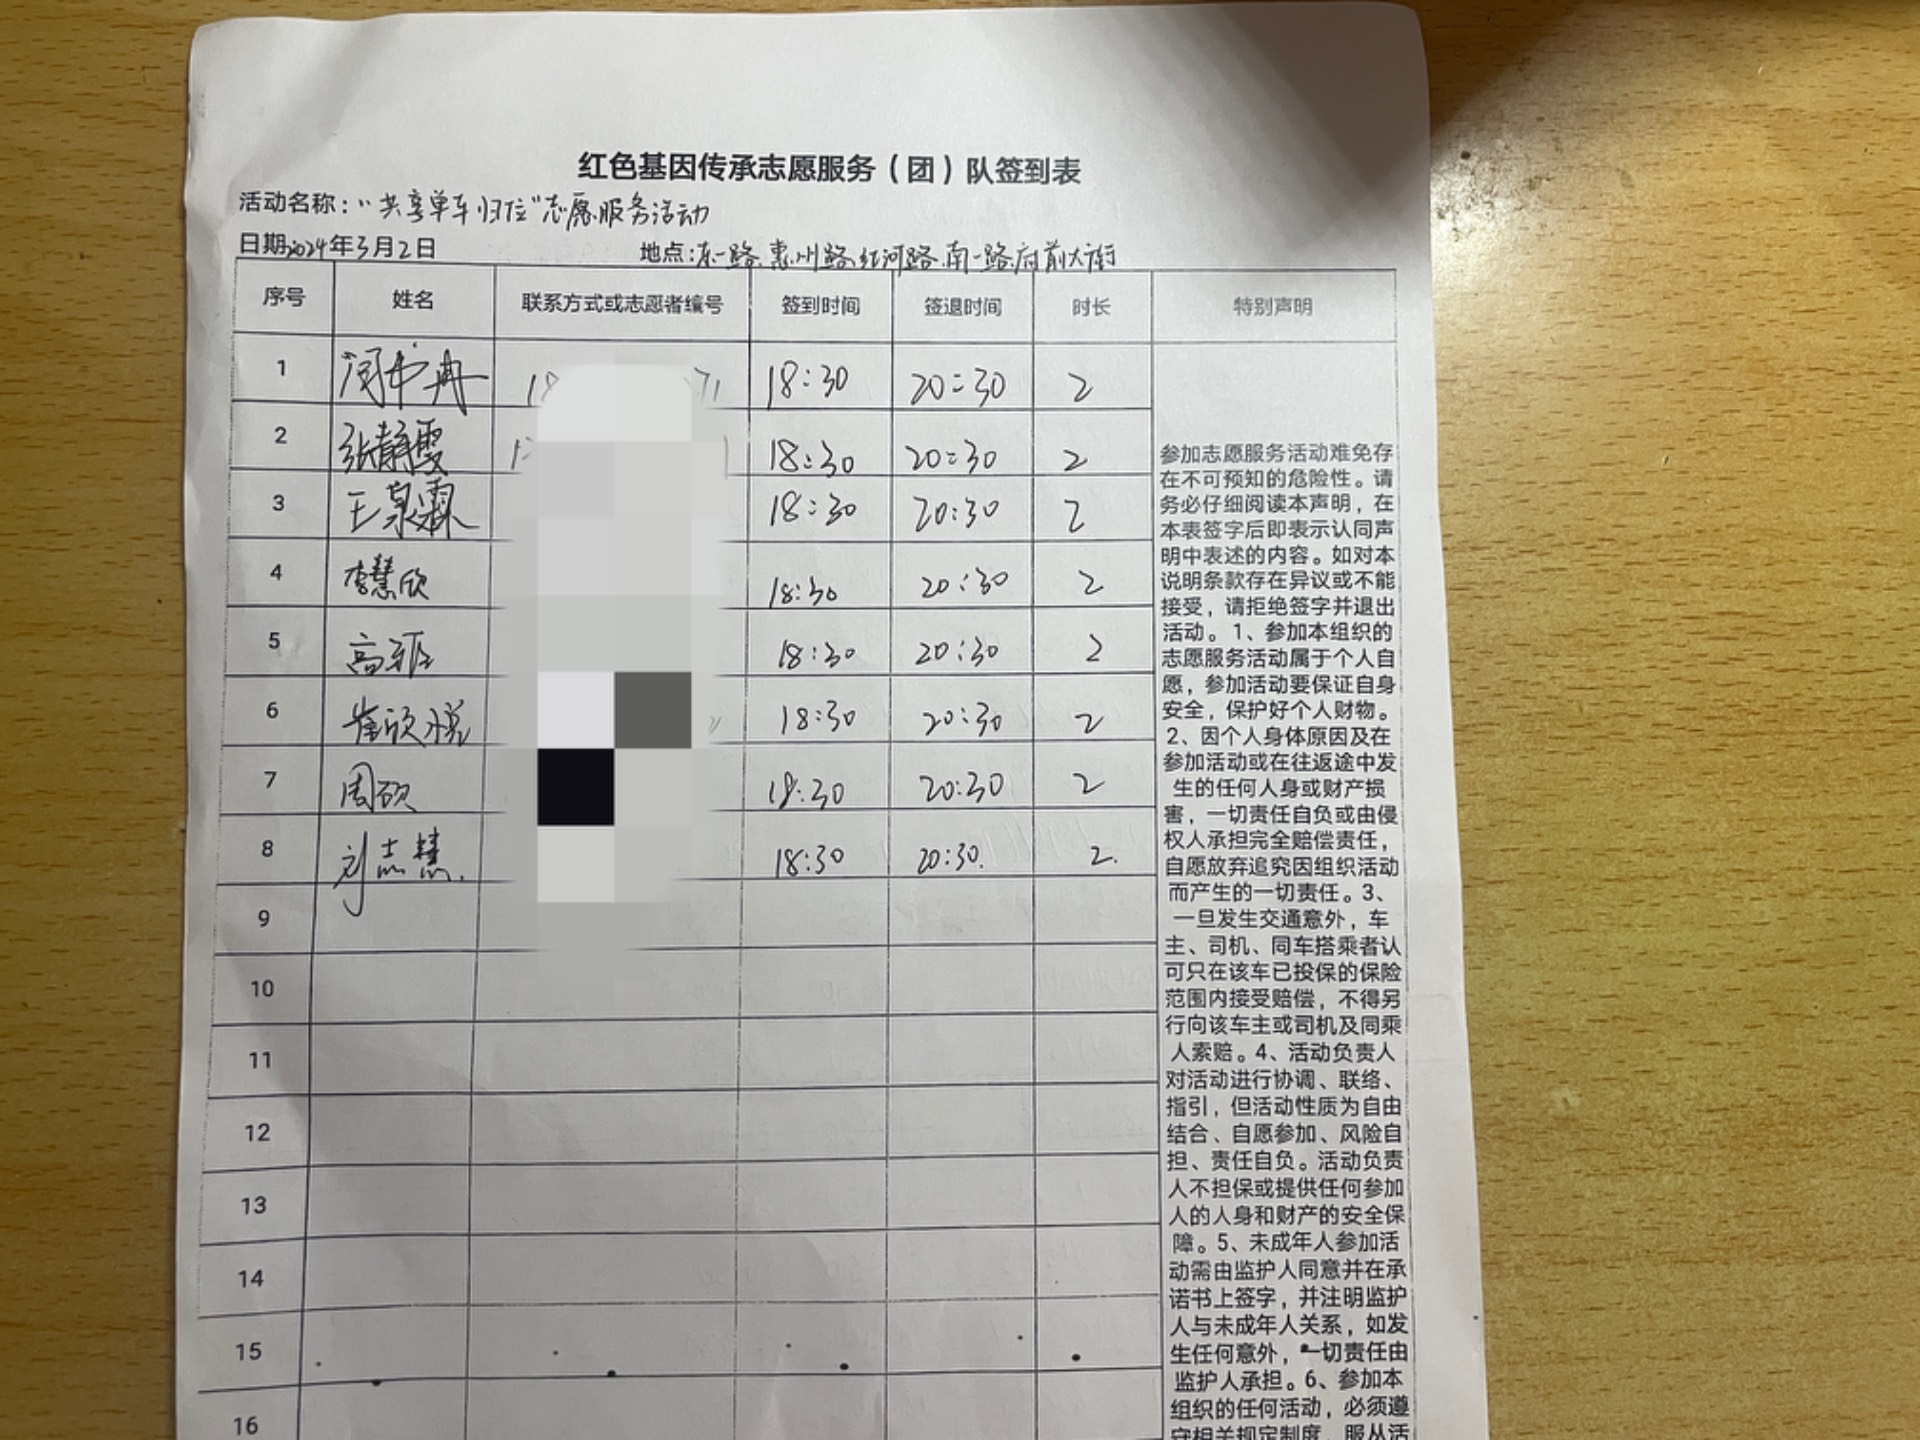 红色基因传承志愿服务（团）队签到表
活动名称：“共享单车归位”志愿服务活动
日期2024年3月2日 地点：东一路、惠州路、红河路、南一路、府前大街
序号 姓名 联系方式或志愿者编号 签到时间 签退时间 时长 特别声明
1 18 71 18:30 20:30 2
2 张静雯 18:30 20:30 2
3 王泉霖 18:30 20:30 2
4 李慧欣 18:30 20:30 2
5 高 18:30 20:30 2
6 崔欣悦 18:30 20:30 2
7 周硕 18:30 20:30 2
8 刘志慧. 18:30 20:30. 2.
9
10
11
12
13
14
15
16
参加志愿服务活动难免存
在不可预知的危险性。请
务必仔细阅读本声明，在
本表签字后即表示认同声
明中表述的内容。如对本
说明条款存在异议或不能
接受，请拒绝签字并退出
活动。1、参加本组织的
志愿服务活动属于个人自
愿，参加活动要保证自身
安全，保护好个人财物。
2、因个人身体原因及在
参加活动或在往返途中发
生的任何人身或财产损
害，一切责任自负或由侵
权人承担完全赔偿责任，
自愿放弃追究因组织活动
而产生的一切责任。3、
一旦发生交通意外，车
主、司机、同车搭乘者认
可只在该车已投保的保险
范围内接受赔偿，不得另
行向该车主或司机及同乘
人索赔。4、活动负责人
对活动进行协调、联络、
指引，但活动性质为自由
结合、自愿参加、风险自
担、责任自负。活动负责
人不担保或提供任何参加
人的人身和财产的安全保
障。5、未成年人参加活
动需由监护人同意并在承
诺书上签字，并注明监护
人与未成年人关系，如发
生任何意外，一切责任由
监护人承担。6、参加本
组织的任何活动，必须遵
守相关规定制度，服从活